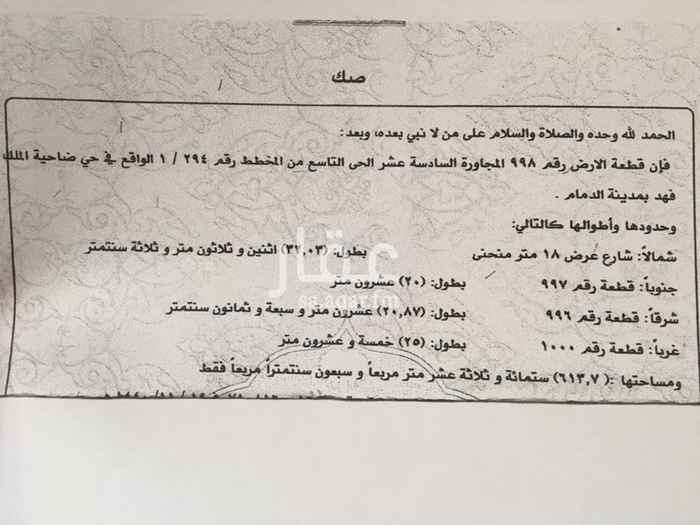 صك
الحمد لله وحده والصلاة والسلام على من لا نبي بعده، وبعد:
فإن قطعة الارض رقم ٩٩٨ المجاورة السادسة عشر الحى التاسع من المخطط رقم ٢٩٤ / ١ الواقع في حي ضاحية الملك
فهد بمدينة الدمام .
وحدودها وأطوالها كالتالي:
شمالاً: شارع عرض ١٨ متر منحنى بطول: (٣٢,٠٣) اثنين و ثلاثون متر و ثلاثة سنتمتر
جنوباً: قطعة رقم ٩٩٧ بطول: (٢٠) عشرون متر
شرقاً: قطعة رقم ٩٩٦ بطول: (٢٠,٨٧) عشرون متر و سبعة و ثمانون سنتمتر
غرباً: قطعة رقم ١٠٠٠ بطول: (٢٥) خمسة و عشرون متر
ومساحتها :(٦١٣,٧) ستمائة و ثلاثة عشر متر مربعاً و سبعون سنتمتراً مربعاً فقط
عقار
sa.aqar.fm